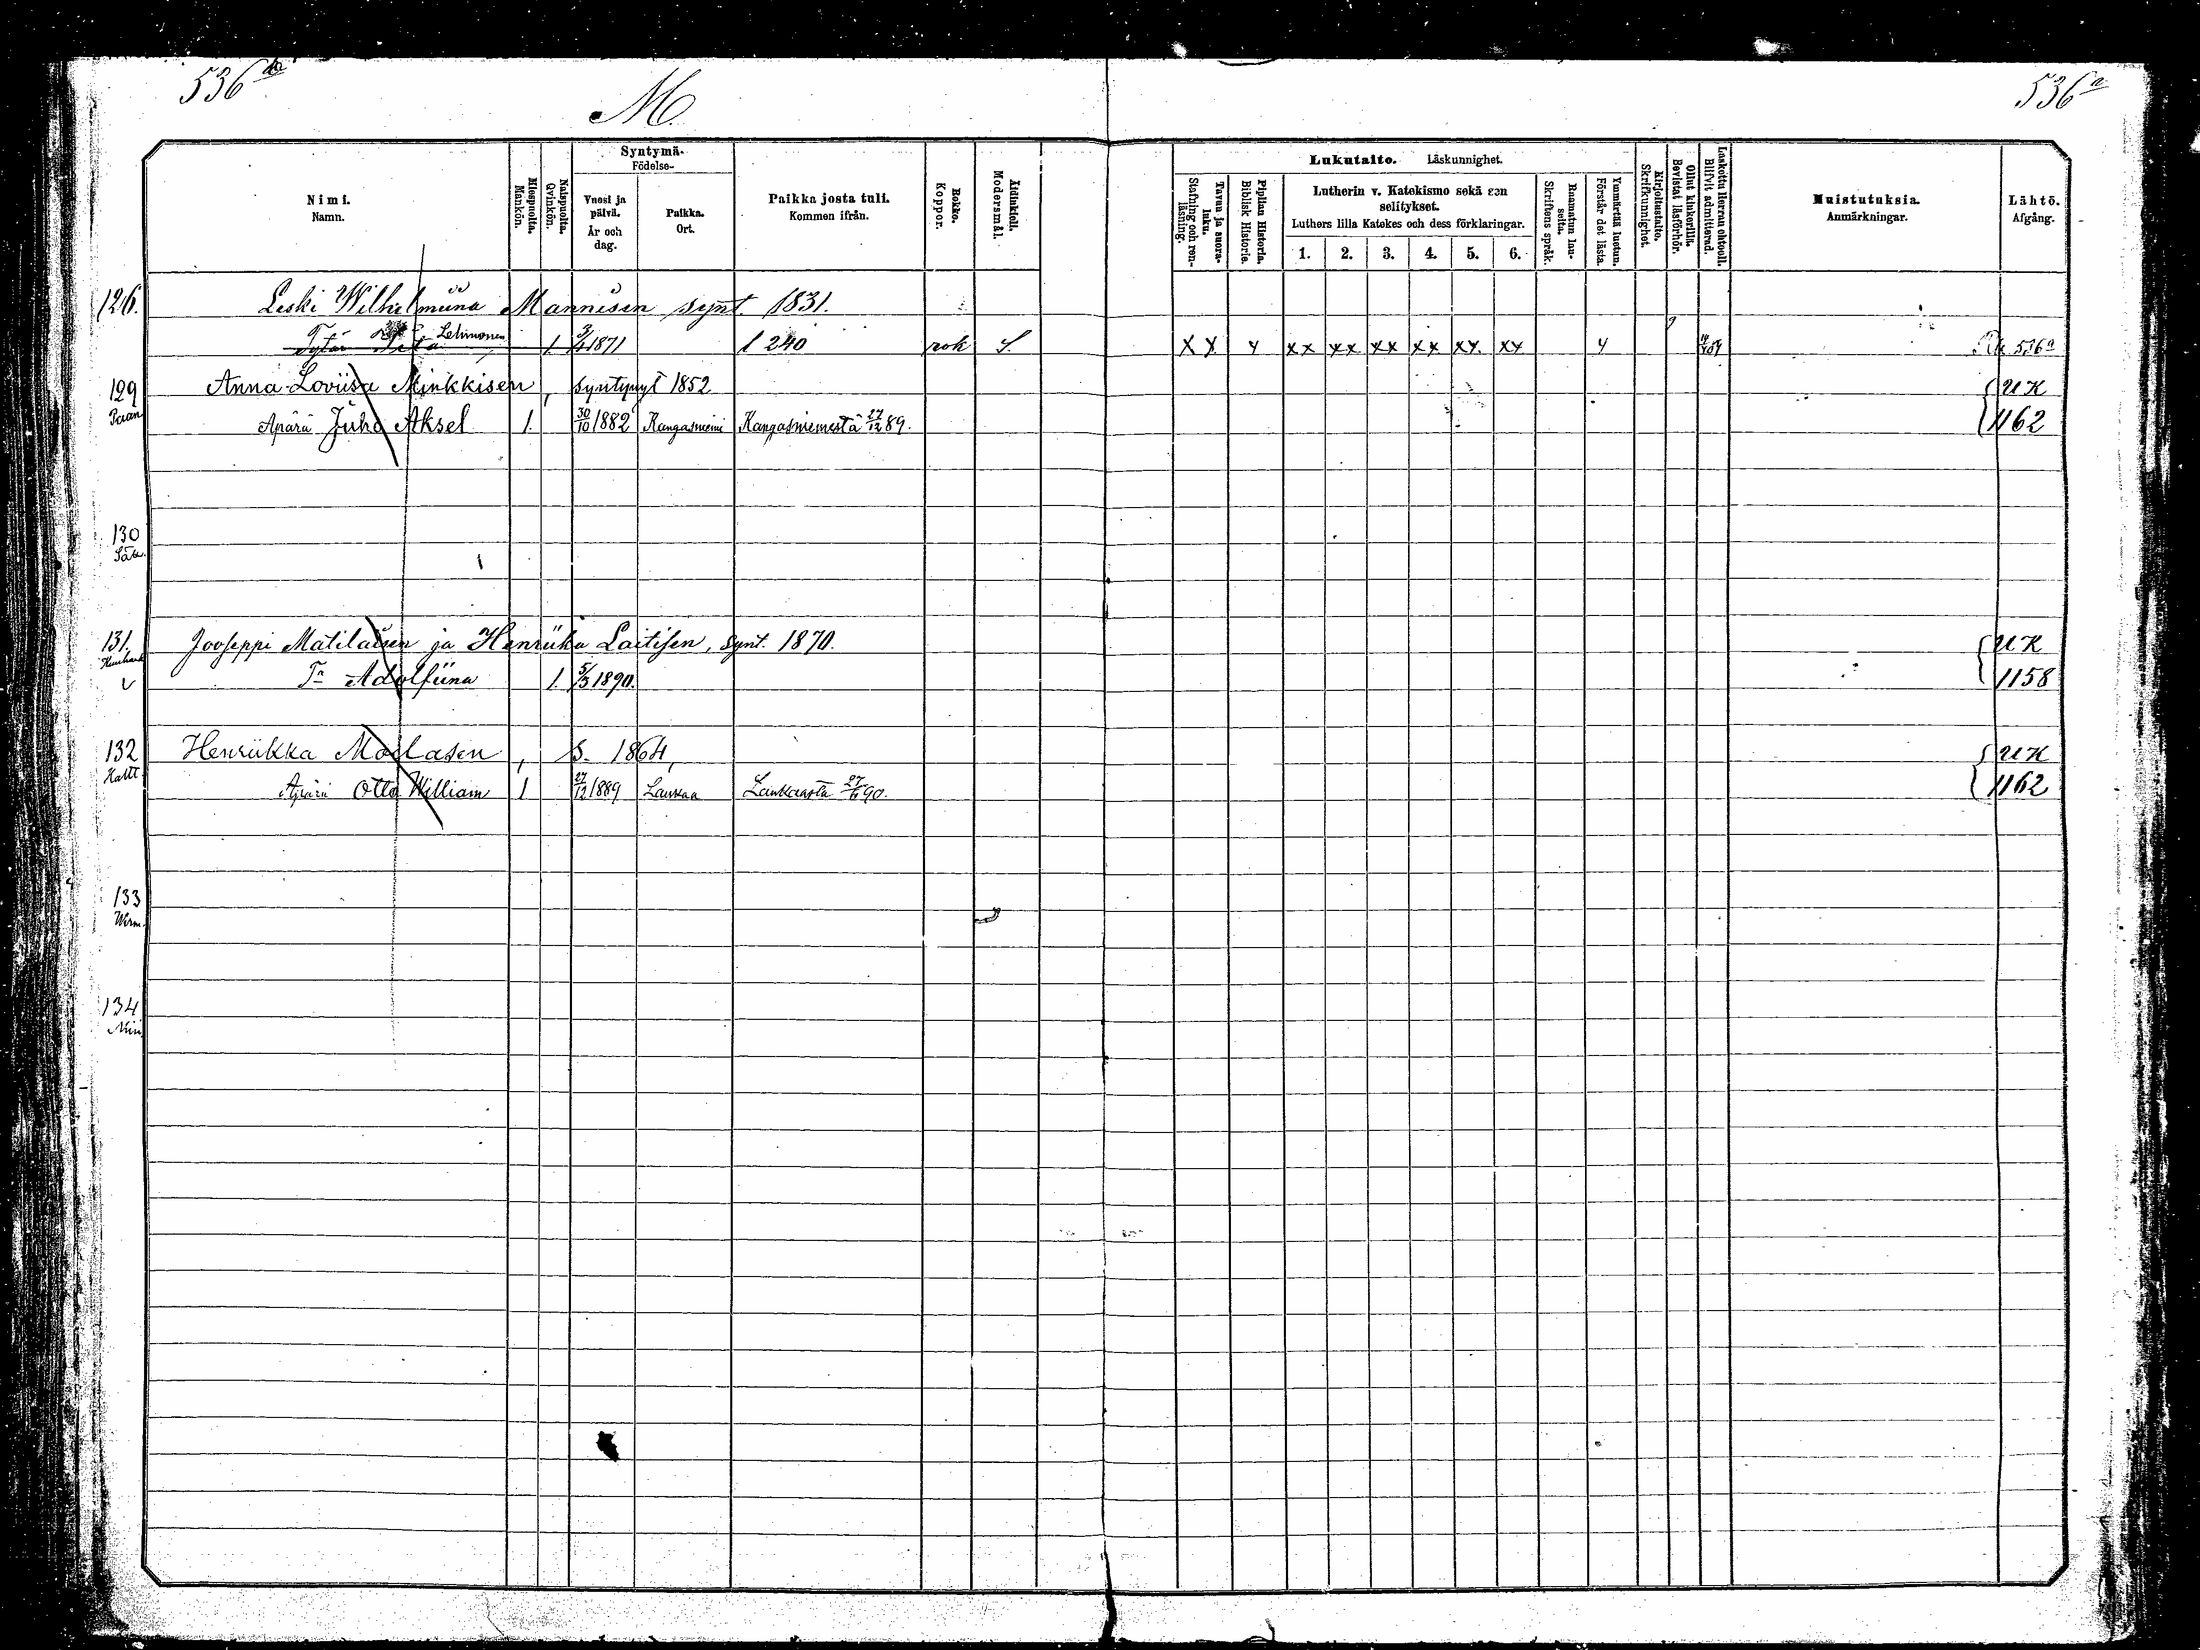 536
M
536a
Syntymä-
Födelse-
Nimi.
Namn.
Miespuolia.
Mankön.
Naispuolia.
Qvinkön.
Vuosi ja päivä.
År och dag.
Paikka.
Ort.
Paikka josta tuli.
Kommen ifrån.
Rokko.
Koppor.
Äidinkieli.
Modersmål.
Lukutaito. Läskunnighet.
Tavuu ja suora-luku.
Stafning och ren-läsning.
Piplian Historia.
Biblisk Historie.
Lutherin v. Katekismo sekä sen selitykset.
Luthers lilla Katekes och dess förklaringar.
1. 2. 3. 4. 5. 6.
Raamatun lau-seita.
Skriftens språk.
Ymmärtää luetun.
Förstår det lästa.
Kirjoitustaito.
Skrifkunnighet.
Ollut kinkerillä.
Bevistat läsförhör.
Laskettu Herran ehtooll.
Blifvit admitterad.
Muistutuksia.
Anmärkningar.
Lähtö.
Afgång.
126. Leski Wilhelmiina Männisen synt. 1831.
Tytär Lehmonen 1. 1871 1 240 rok S. XX 4 xx xx xx xx xx. xx 4 536a
129 Anna-Loviisa Minkkisen, syntynyt 1852 UK
Äpärä Juho Aksel 1. 30/10 1882 Kangasniemi Kangasniemestä 27/12 89. 1162
130
131. Jooseppi Matilaisen ja Henriika Laitisen, synt. 1870. UK
Tr Adolfiina 1. 5/3 1890. 1158
132 Henriikka Moilasen, s. 1864, UK
Kattt Äpärä Otto William 1 27/12 1889 Laukaa Laukaasta 90. 1162
133
134